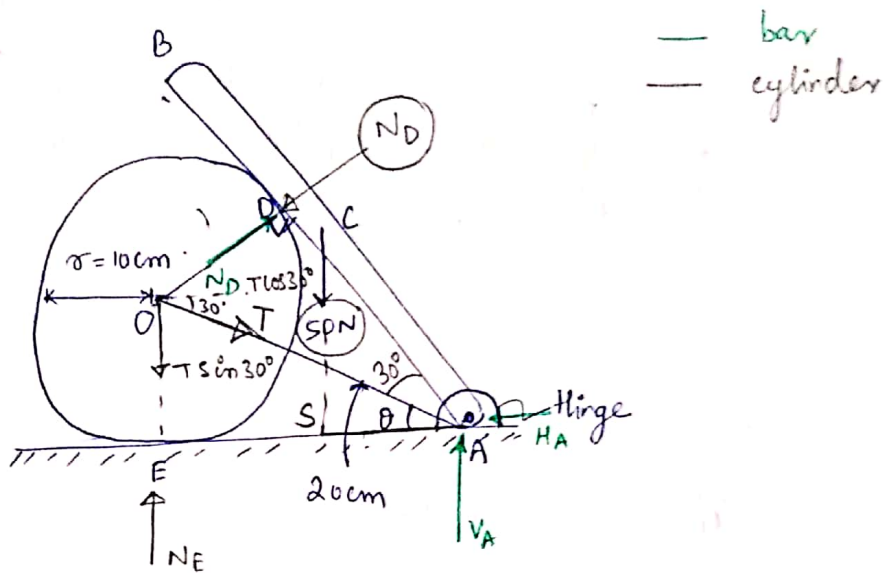 bar
cylinder
B
N_D
D
C
r = 10cm
N_D
Tcos30°
30°
O
T
50N
Tsin30°
30°
S
θ
Hinge
H_A
A
E
20cm
V_A
N_E